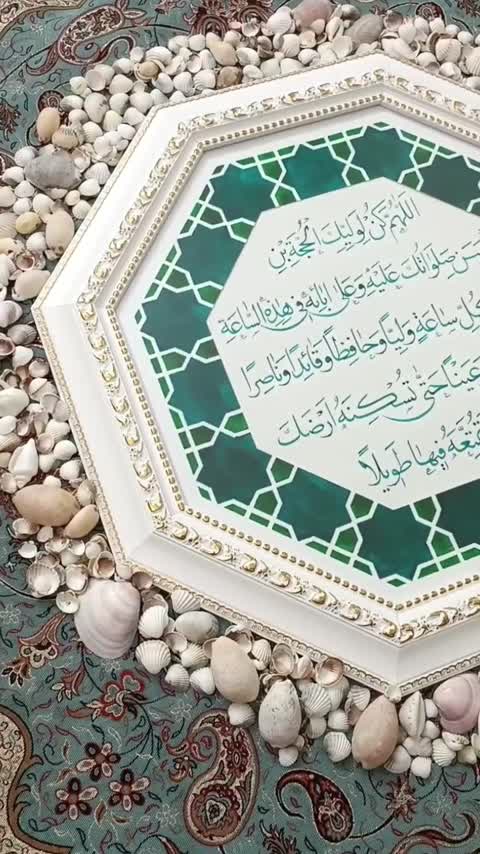 اللّهُمَّ كُنْ لِوَلِيِّكَ الْحُجَّةِ بْنِ
صَلَواتُكَ عَلَيْهِ وَعَلى ابائِهِ فی هذِهِ السّاعَةِ
ساعَةٍ وَلِيّاً وَحافِظاً وَقائِداً وَناصِراً
عَيْناً حَتّى تُسْكِنَهُ اَرْضَكَ
فيها طَويلاً